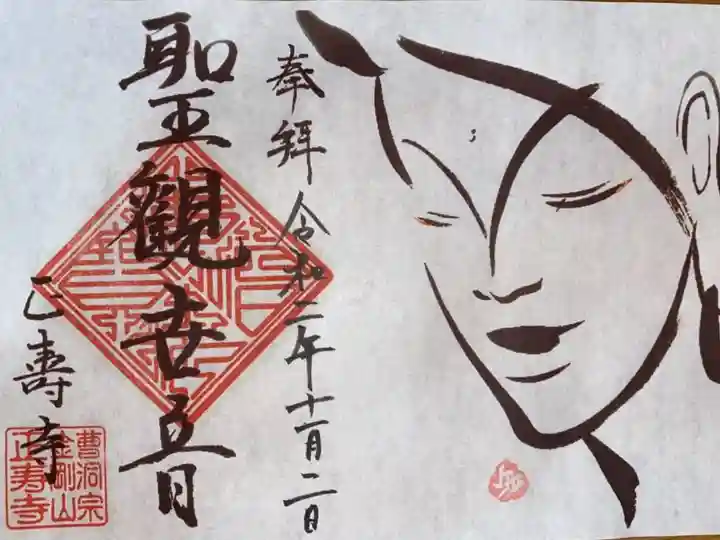 奉拜 令和二年十一月二日
聖觀世音
正壽寺
曹洞宗
金剛山
正寿寺